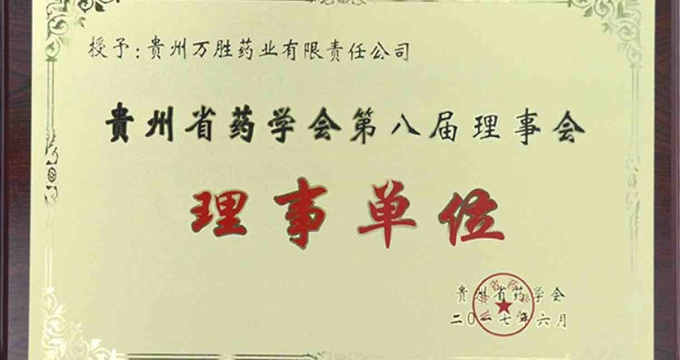 授予：贵州万胜药业有限责任公司
贵州省药学会第八届理事会
理事单位
贵州省药学会
二〇一七年六月